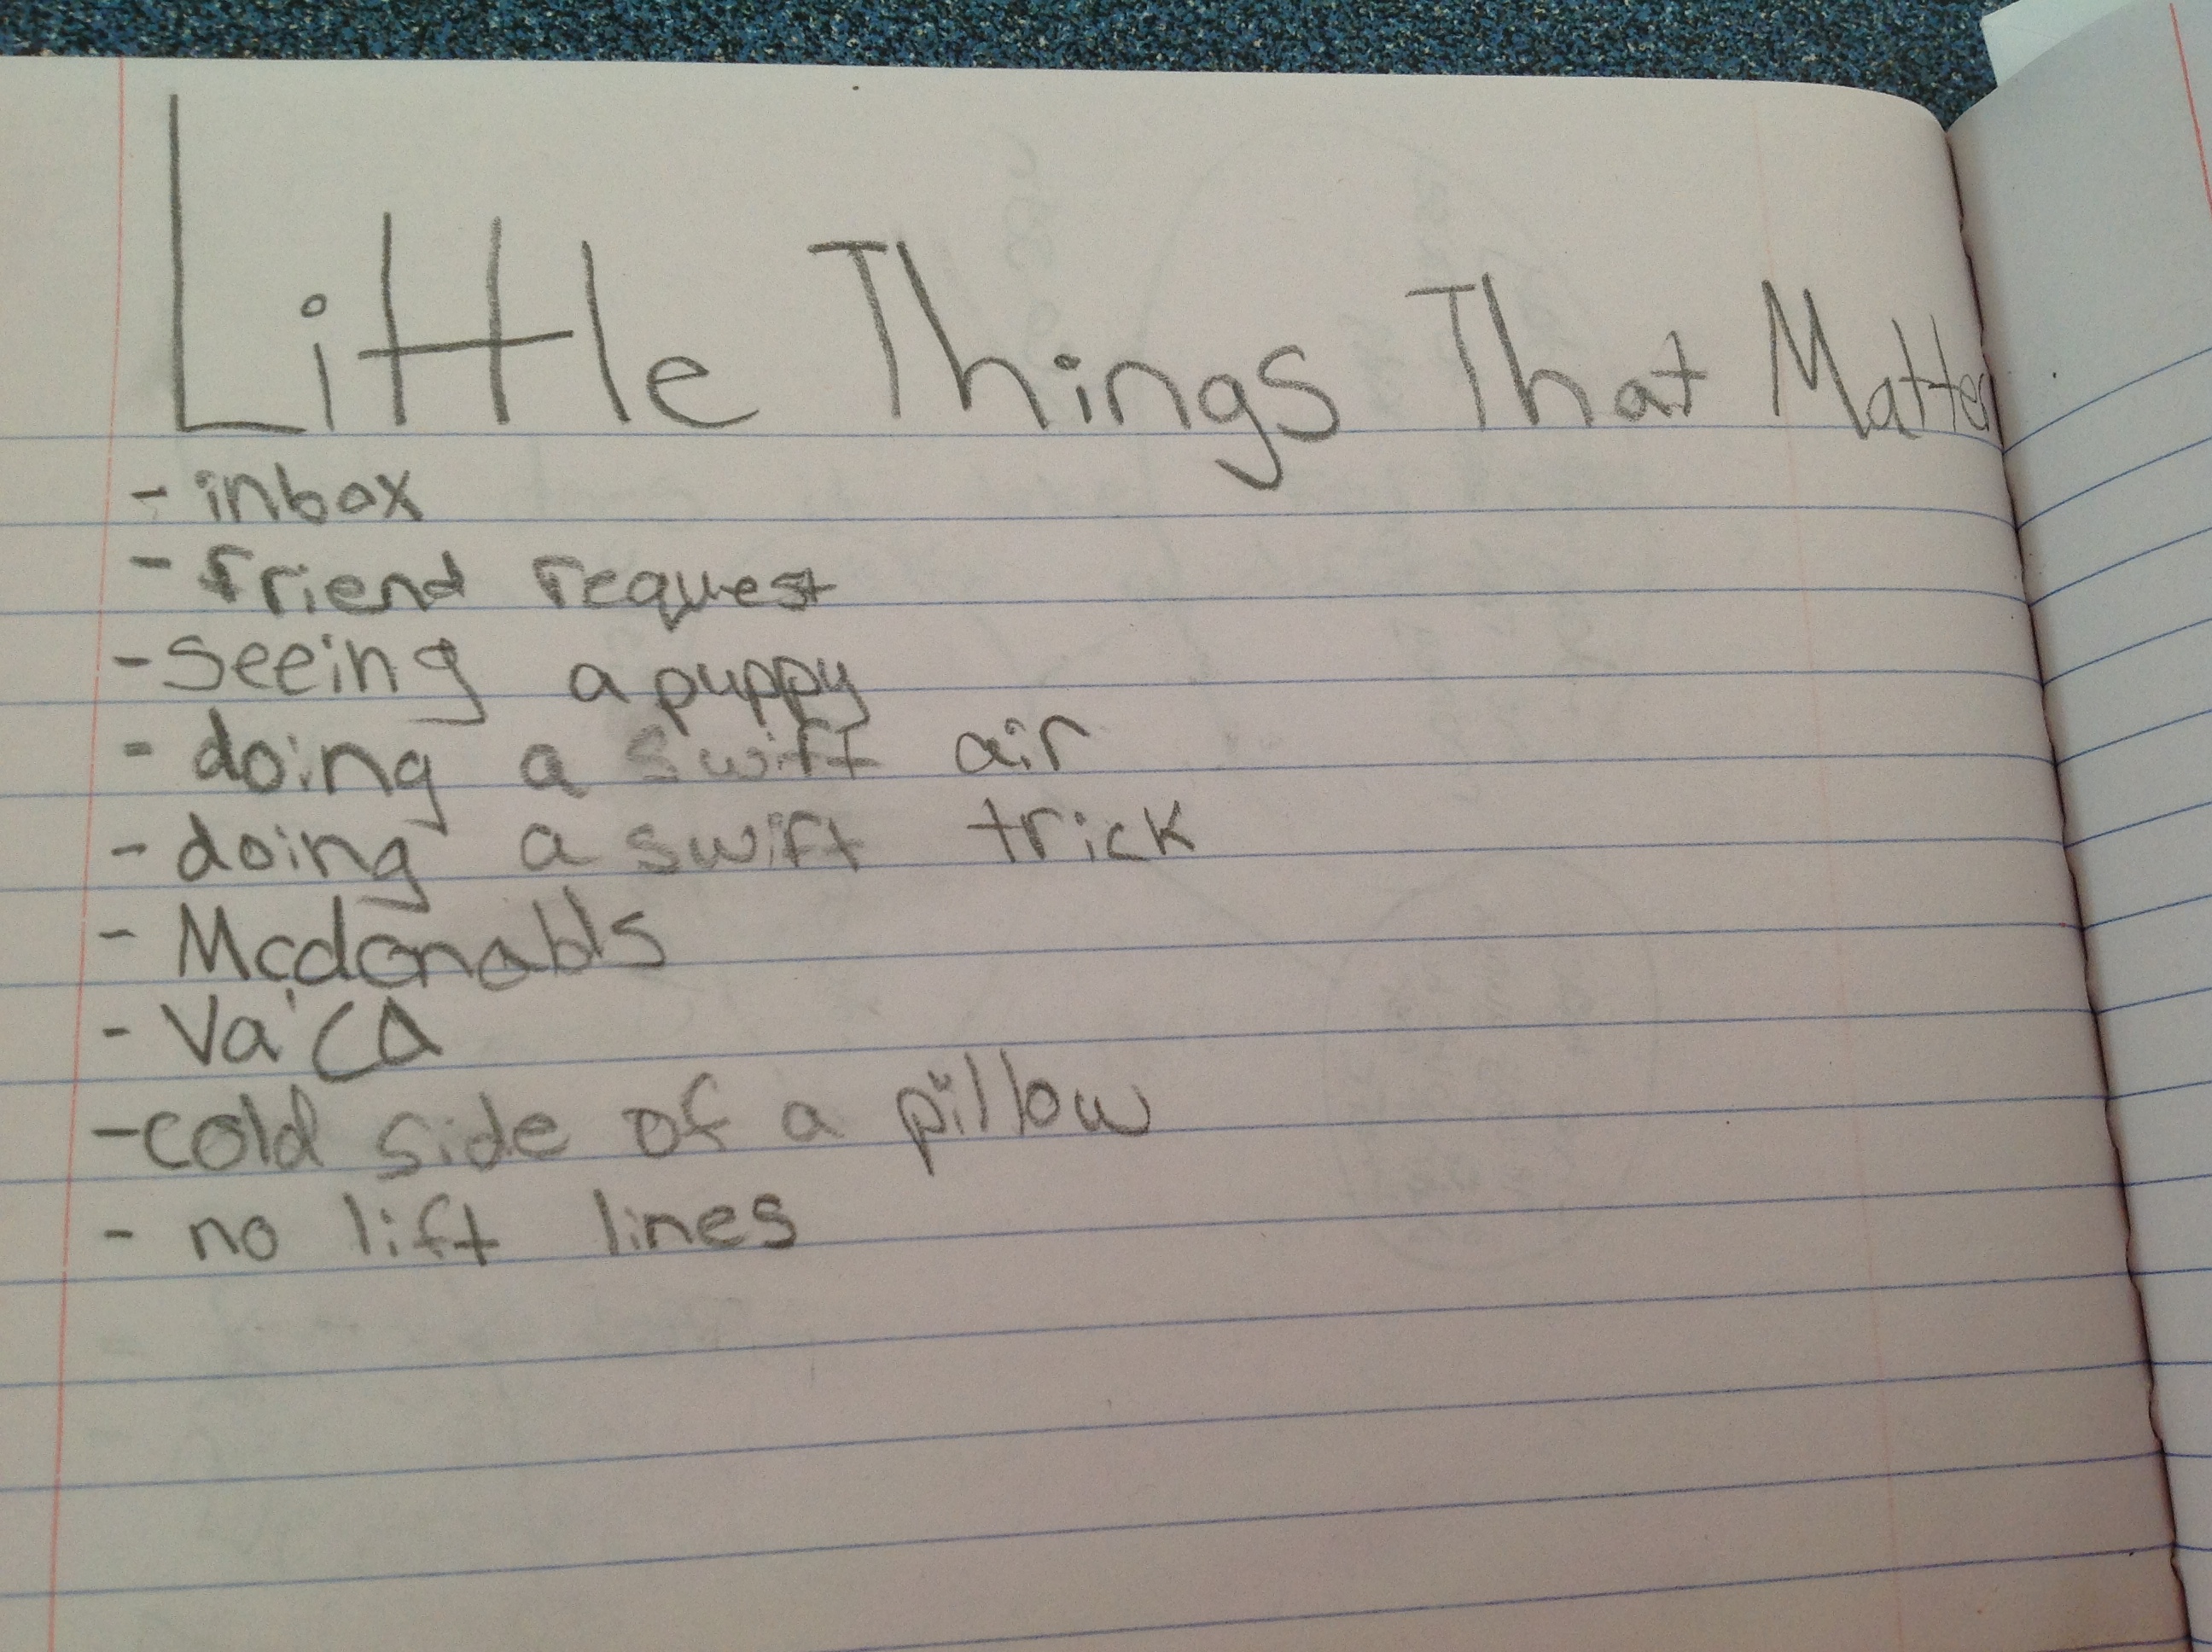 Little Things That Matter
- inbox
- friend request
- seeing a puppy
- doing a swift air
- doing a swift trick
- Mcdonalds
- Va'ca
- cold side of a pillow
- no lift lines